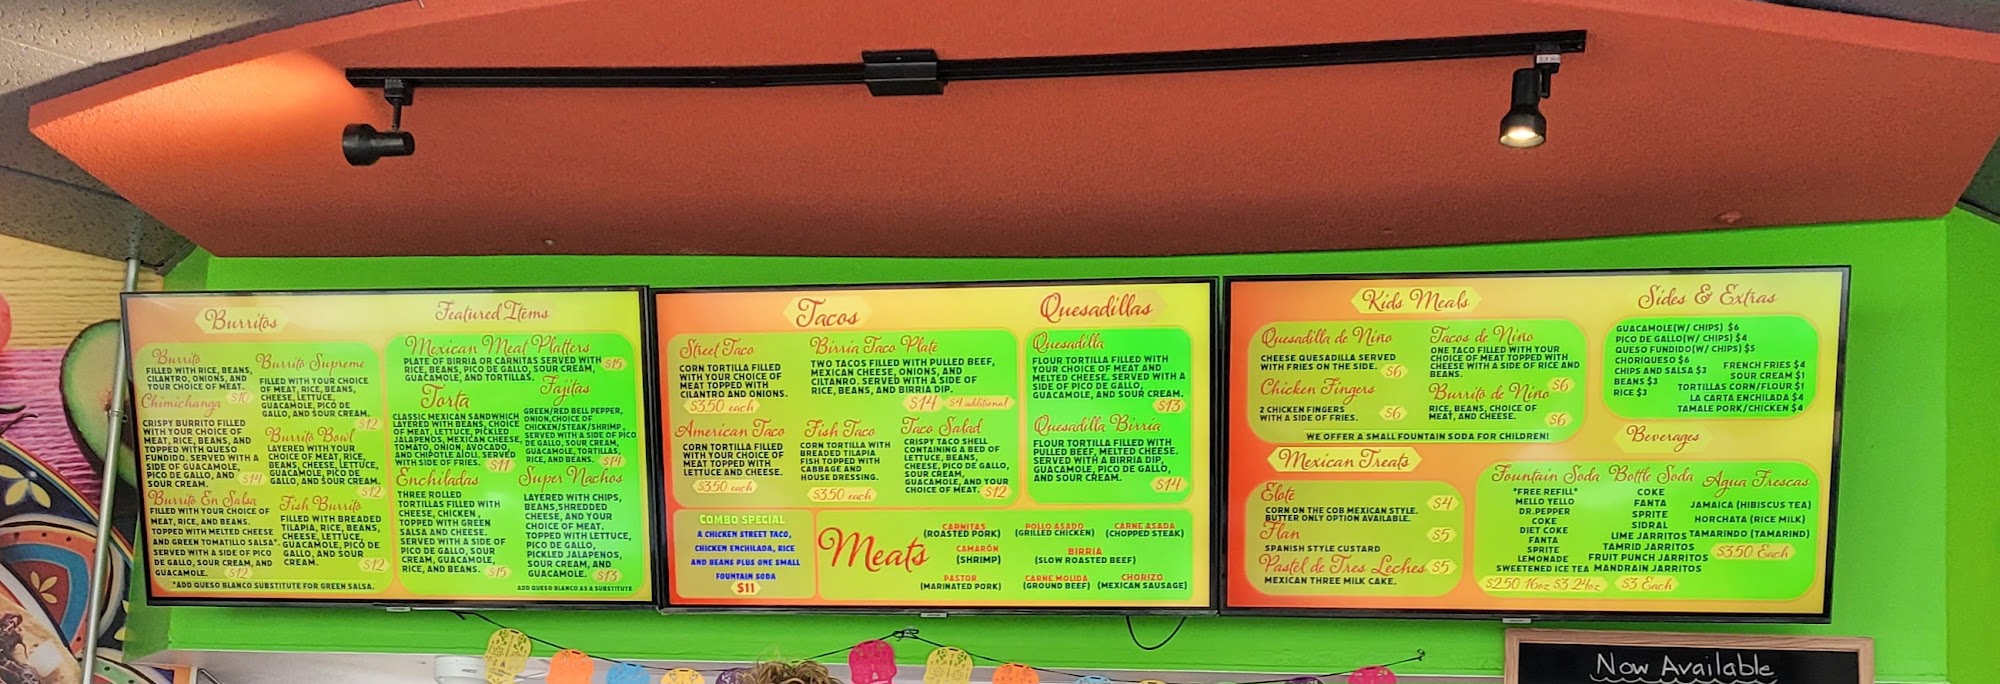 Burritos
Burrito
FILLED WITH RICE, BEANS,
CILANTRO, ONIONS, AND
YOUR CHOICE OF MEAT.
$10
Chimichanga
CRISPY BURRITO FILLED
WITH YOUR CHOICE OF
MEAT, RICE, BEANS, AND
TOPPED WITH QUESO
FUNDIDO. SERVED WITH A
SIDE OF GUACAMOLE,
PICO DE GALLO, AND
SOUR CREAM.
$14
Burrito En Salsa
FILLED WITH YOUR CHOICE OF
MEAT, RICE, AND BEANS.
TOPPED WITH MELTED CHEESE
AND GREEN TOMATILLO SALSA*.
SERVED WITH A SIDE OF PICO
DE GALLO, SOUR CREAM, AND
GUACAMOLE.
$12
Burrito Supreme
FILLED WITH YOUR CHOICE
OF MEAT, RICE, BEANS,
CHEESE, LETTUCE,
GUACAMOLE, PICO DE
GALLO, AND SOUR CREAM.
$12
Burrito Bowl
LAYERED WITH YOUR
CHOICE OF MEAT, RICE,
BEANS, CHEESE, LETTUCE,
GUACAMOLE, PICO DE
GALLO, AND SOUR CREAM.
$12
Fish Burrito
FILLED WITH BREADED
TILAPIA, RICE, BEANS,
CHEESE, LETTUCE,
GUACAMOLE, PICO DE
GALLO, AND SOUR
CREAM.
$12
*ADD QUESO BLANCO SUBSTITUTE FOR GREEN SALSA.
Featured Items
Mexican Meat Platters
PLATE OF BIRRIA OR CARNITAS SERVED WITH
RICE, BEANS, PICO DE GALLO, SOUR CREAM,
GUACAMOLE, AND TORTILLAS.
$15
Torta
CLASSIC MEXICAN SANDWHICH
LAYERED WITH BEANS, CHOICE
OF MEAT, LETTUCE, PICKLED
JALAPENOS, MEXICAN CHEESE,
TOMATO, ONION, AVOCADO,
AND CHIPOTLE AIOLI. SERVED
WITH SIDE OF FRIES.
$11
Enchiladas
THREE ROLLED
TORTILLAS FILLED WITH
CHEESE, CHICKEN,
TOPPED WITH GREEN
SALSA AND CHEESE.
SERVED WITH A SIDE OF
PICO DE GALLO, SOUR
CREAM, GUACAMOLE,
RICE, AND BEANS.
$15
Fajitas
GREEN/RED BELL PEPPER,
ONION, CHOICE OF
CHICKEN/STEAK/SHRIMP,
SERVED WITH A SIDE OF PICO
DE GALLO, SOUR CREAM,
GUACAMOLE, TORTILLAS,
RICE, AND BEANS.
$14
Super Nachos
LAYERED WITH CHIPS,
BEANS, SHREDDED
CHEESE, AND YOUR
CHOICE OF MEAT.
TOPPED WITH LETTUCE,
PICO DE GALLO,
PICKLED JALAPENOS,
SOUR CREAM, AND
GUACAMOLE.
$13
ADD QUESO BLANCO AS A SUBSTITUTE
Tacos
Street Taco
CORN TORTILLA FILLED
WITH YOUR CHOICE OF
MEAT TOPPED WITH
CILANTRO AND ONIONS.
$3.50 each
Birria Taco Plate
TWO TACOS FILLED WITH PULLED BEEF,
MEXICAN CHEESE, ONIONS, AND
CILTANRO. SERVED WITH A SIDE OF
RICE, BEANS, AND BIRRIA DIP.
$14 $4 additional
American Taco
CORN TORTILLA FILLED
WITH YOUR CHOICE OF
MEAT TOPPED WITH
LETTUCE AND CHEESE.
$3.50 each
Fish Taco
CORN TORTILLA WITH
BREADED TILAPIA
FISH TOPPED WITH
CABBAGE AND
HOUSE DRESSING.
$3.50 each
Taco Salad
CRISPY TACO SHELL
CONTAINING A BED OF
LETTUCE, BEANS,
CHEESE, PICO DE GALLO,
SOUR CREAM,
GUACAMOLE, AND YOUR
CHOICE OF MEAT.
$12
Quesadillas
Quesadilla
FLOUR TORTILLA FILLED WITH
YOUR CHOICE OF MEAT AND
MELTED CHEESE, SERVED WITH A
SIDE OF PICO DE GALLO,
GUACAMOLE, AND SOUR CREAM.
$13
Quesadilla Birria
FLOUR TORTILLA FILLED WITH
PULLED BEEF, MELTED CHEESE.
SERVED WITH A BIRRIA DIP,
GUACAMOLE, PICO DE GALLO,
AND SOUR CREAM.
$14
COMBO SPECIAL
A CHICKEN STREET TACO,
CHICKEN ENCHILADA, RICE
AND BEANS PLUS ONE SMALL
FOUNTAIN SODA
$11
Meats
CARNITAS
(ROASTED PORK)
POLLO ASADO
(GRILLED CHICKEN)
CARNE ASADA
(CHOPPED STEAK)
CAMARÓN
(SHRIMP)
BIRRIA
(SLOW ROASTED BEEF)
PASTOR
(MARINATED PORK)
CARNE MOLIDA
(GROUND BEEF)
CHORIZO
(MEXICAN SAUSAGE)
Kids Meals
Quesadilla de Nino
CHEESE QUESADILLA SERVED
WITH FRIES ON THE SIDE.
$6
Chicken Fingers
2 CHICKEN FINGERS
WITH A SIDE OF FRIES.
$6
Tacos de Nino
ONE TACO FILLED WITH YOUR
CHOICE OF MEAT TOPPED WITH
CHEESE WITH A SIDE OF RICE AND
BEANS.
$6
Burrito de Nino
RICE, BEANS, CHOICE OF
MEAT, AND CHEESE.
$6
WE OFFER A SMALL FOUNTAIN SODA FOR CHILDREN!
Mexican Treats
Elote
CORN ON THE COB MEXICAN STYLE.
BUTTER ONLY OPTION AVAILABLE.
$4
Flan
SPANISH STYLE CUSTARD
$5
Pastel de Tres Leches $5
MEXICAN THREE MILK CAKE.
Sides & Extras
GUACAMOLE(W/ CHIPS) $6
PICO DE GALLO(W/ CHIPS) $4
QUESO FUNDIDO(W/ CHIPS) $5
CHORIQUESO $6
CHIPS AND SALSA $3
BEANS $3
RICE $3
FRENCH FRIES $4
SOUR CREAM $1
TORTILLAS CORN/FLOUR $1
LA CARTA ENCHILADA $4
TAMALE PORK/CHICKEN $4
Beverages
Fountain Soda
*FREE REFILL*
MELLO YELLO
DR.PEPPER
COKE
DIET COKE
FANTA
SPRITE
LEMONADE
SWEETENED ICE TEA
$2.50 16oz $3 24oz
Bottle Soda
COKE
FANTA
SPRITE
SIDRAL
LIME JARRITOS
TAMRID JARRITOS
FRUIT PUNCH JARRITOS
MANDRAIN JARRITOS
$3 Each
Agua Frescas
JAMAICA (HIBISCUS TEA)
HORCHATA (RICE MILK)
TAMARINDO (TAMARIND)
$3.50 Each
Now Available